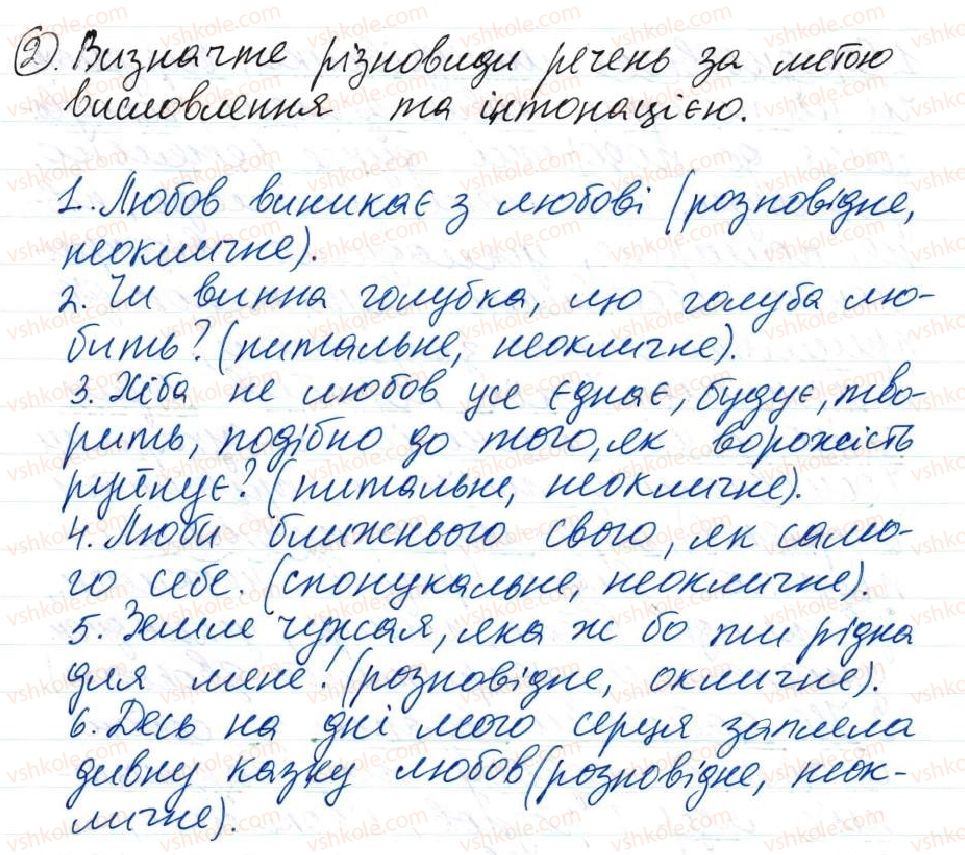 2. Визначте різновиди речень за метою
висловлення та інтонацією.
1. Любов виникає з любові (розповідне,
неокличне).
2. Чи винна голубка, що голуба лю-
бить? (питальне, неокличне).
3. Хіба не любов усе єднає, будує, тво-
рить, подібно до того, як ворожість
руйнує? (питальне, неокличне).
4. Люби ближнього свого, як само-
го себе. (спонукальне, неокличне).
5. Земле чужая, яка ж бо ти рідна
для мене! (розповідне, окличне).
6. Десь на дні мого серця заплела
дивну казку любов (розповідне, неок-
личне).